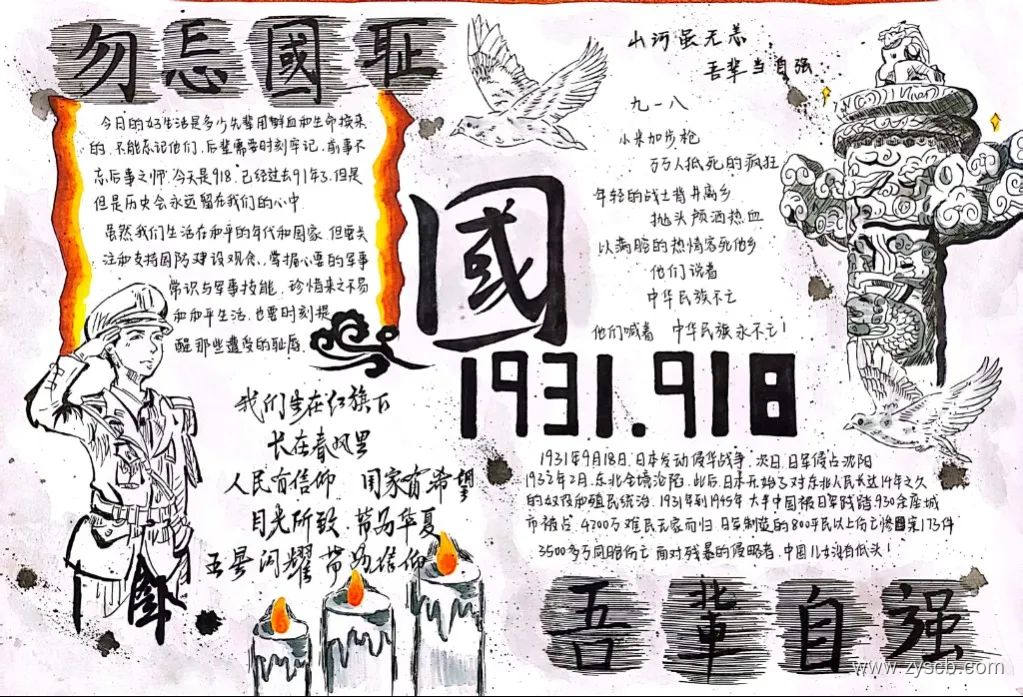 勿忘國耻
今日的好生活是多少先辈用鲜血和生命换来
的,不能忘记他们,后辈需要时刻牢记,前事不
忘后事之师.今天是918,已经过去91年了,但是
但是历史会永远留在我们的心中.
虽然我们生活在和平的年代和国家,但要关
注和支持国防建设观念,掌握必要的军事
常识与军事技能,珍惜来之不易
和和平生活,也要时刻提
醒那些遭受的耻辱.
國
1931.918
山河虽无恙
吾辈当自强
九一八
小米加步枪
万万人抵死的疯狂
年轻的战士背井离乡
抛头颅洒热血
以满腔的热情客死他乡
他们说着
中华民族不亡
他们喊着 中华民族永不亡!
我们生在红旗下
长在春风里
人民有信仰 国家有希望
目光所致.皆为华夏
五星闪耀 皆为信仰
1931年9月18日,日本发动侵华战争,次日,日军侵占沈阳
1932年2月,东北全境沦陷.此后,日本开始了对东北人民长达14年之久
的奴役和殖民统治.1931年到1945年大半中国被日军践踏,930余座城
市被占,4200万难民无家而归,日军制造的800平民以上伤亡惨案173件
3500多万同胞伤亡 面对残暴的侵略者,中国儿女没有低头!
吾辈自强
www.zyscb.com